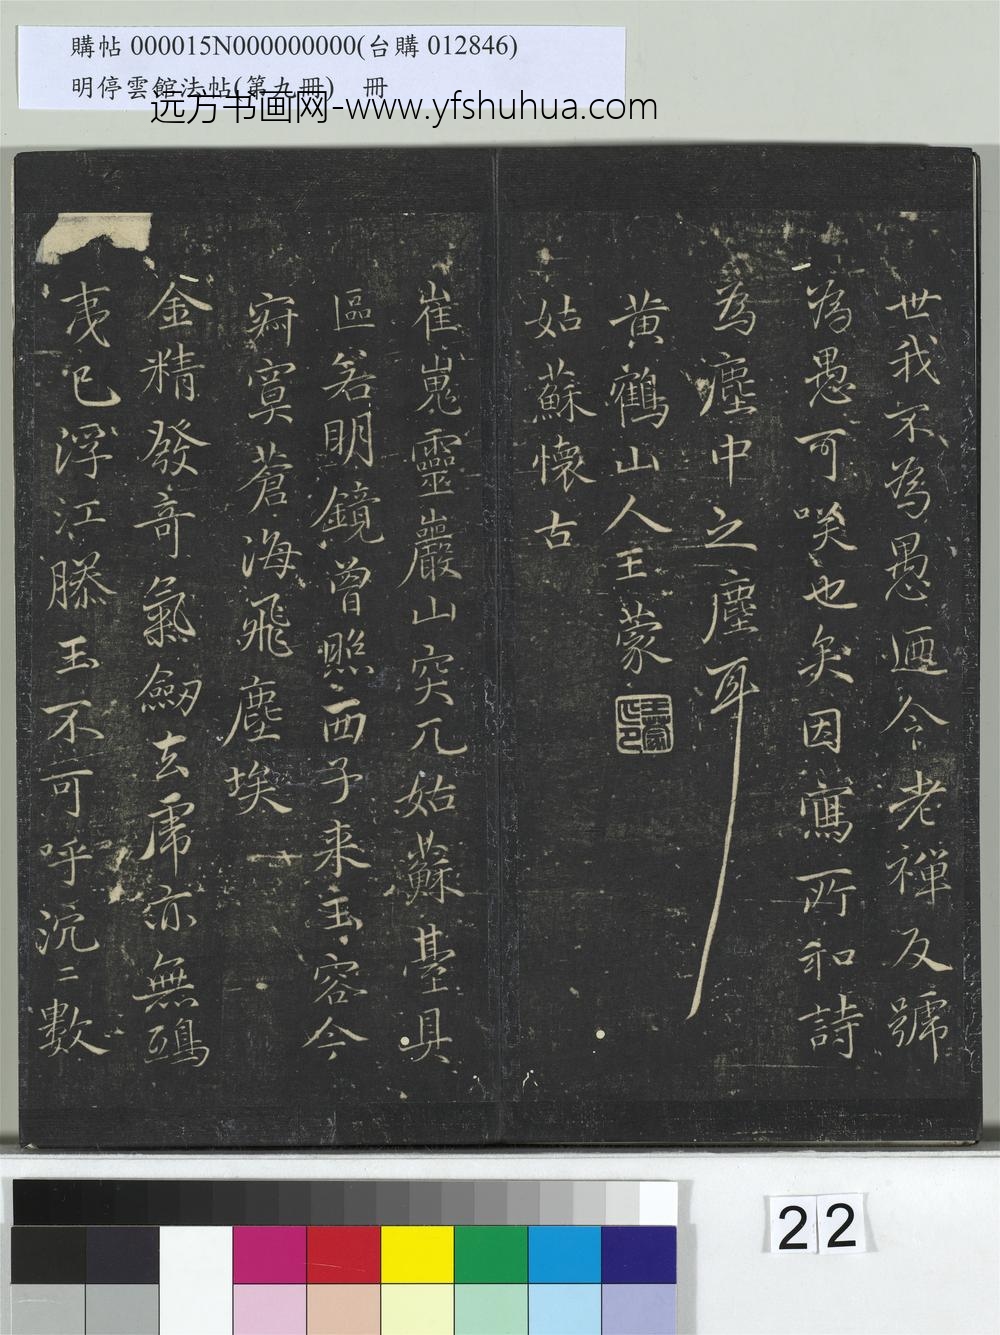 購帖 000015N000000000(台購 012846)
明停雲館法帖(第九冊) 冊
远方书画网-www.yfshuhua.com
世我不為愚迺令老禪反號
為愚可咲也矣因寫所和詩
為塵中之塵耳
黄鶴山人王蒙
王蒙印
姑蘇懷古
崔嵬靈巖山突兀姑蘇臺具
區若明鏡曾照西子来玉容今
寂寞蒼海飛塵埃
金精發奇氣劔去虎亦無鴟
夷已浮江滕玉不可呼沉〻數
22